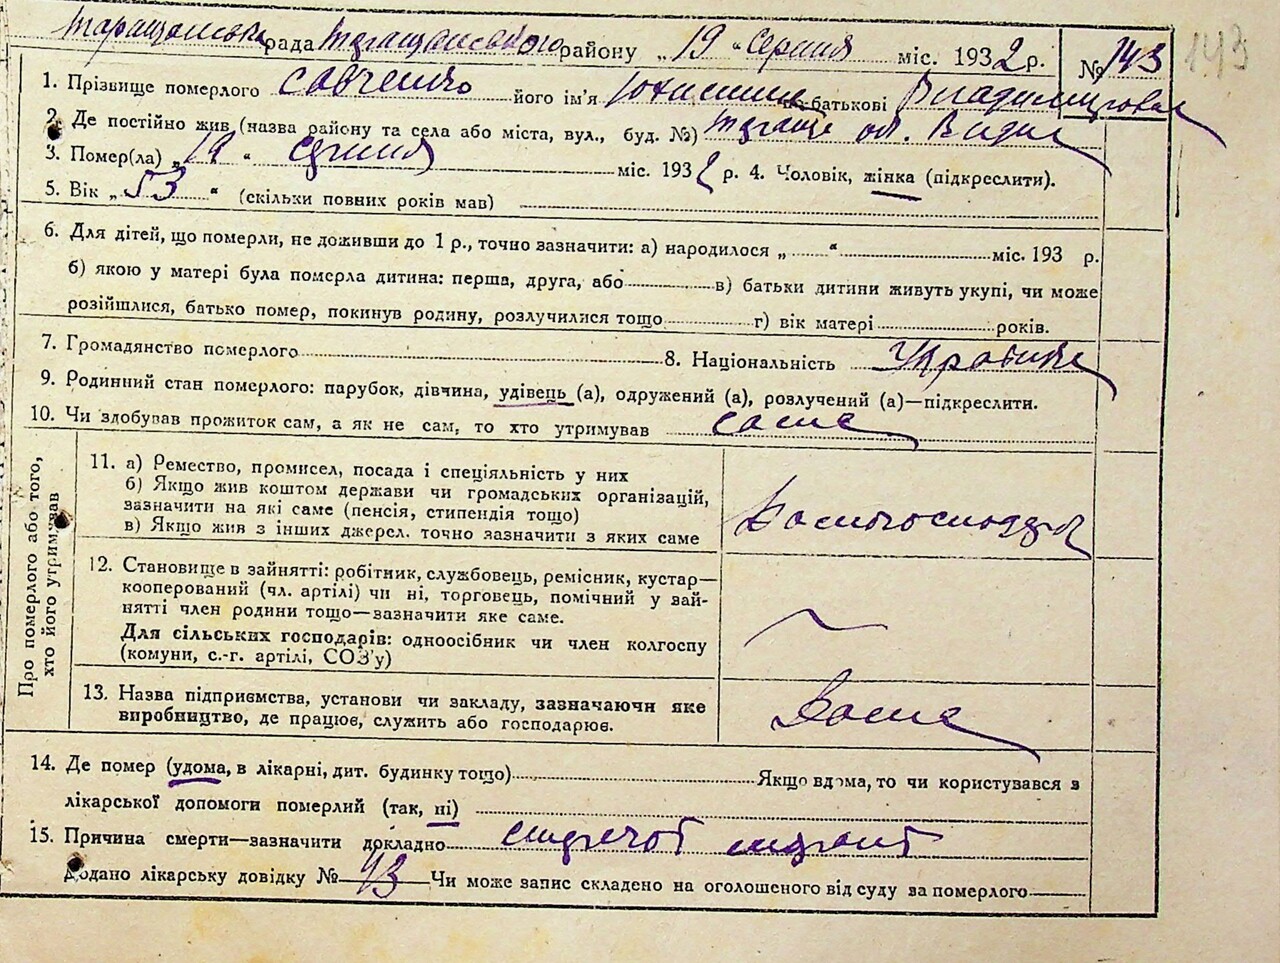 Таращанська рада Таращанського району „ 19 “ Серпня міс. 1932 р. № 143 143
1. Прізвище померлого Савченко його ім'я по батькові Владимировна
2. Де постійно жив (назва району та села або міста, вул., буд. №) Тараща
3. Помер(ла) „ 19 “ серпня міс. 1932 р. 4. Чоловік, жінка (підкреслити).
5. Вік „ 53 “ (скільки повних років мав)
6. Для дітей, що померли, не доживши до 1 р., точно зазначити: а) народилося „ “ міс. 193 р.
б) якою у матері була померла дитина: перша, друга, або в) батьки дитини живуть укупі, чи може
розійшлися, батько помер, покинув родину, розлучилися тощо г) вік матері років.
7. Громадянство померлого 8. Національність Українка
9. Родинний стан померлого: парубок, дівчина, удівець (а), одружений (а), розлучений (а)—підкреслити.
10. Чи здобував прожиток сам, а як не сам, то хто утримував сама
Про померлого або того,
хто його утримував
11. а) Ремество, промисел, посада і спеціяльність у них
б) Якщо жив коштом держави чи громадських організацій,
зазначити на які саме (пенсія, стипендія тощо)
в) Якщо жив з інших джерел. точно зазначити з яких саме
Домогосподар
12. Становище в зайнятті: робітник, службовець, ремісник, кустар—
кооперований (чл. артілі) чи ні, торговець, помічний у зай-
нятті член родини тощо—зазначити яке саме.
Для сільських господарів: одноосібник чи член колгоспу
(комуни, с.-г. артілі, СОЗ'у)
13. Назва підприємства, установи чи закладу, зазначаючи яке
виробництво, де працює, служить або господарює.
Дома
14. Де помер (удома, в лікарні, дит. будинку тощо) Якщо вдома, то чи користувався з
лікарської допомоги померлий (так, ні)
15. Причина смерти—зазначити докладно
Додано лікарську довідку № 43 Чи може запис складено на оголошеного від суду за померлого